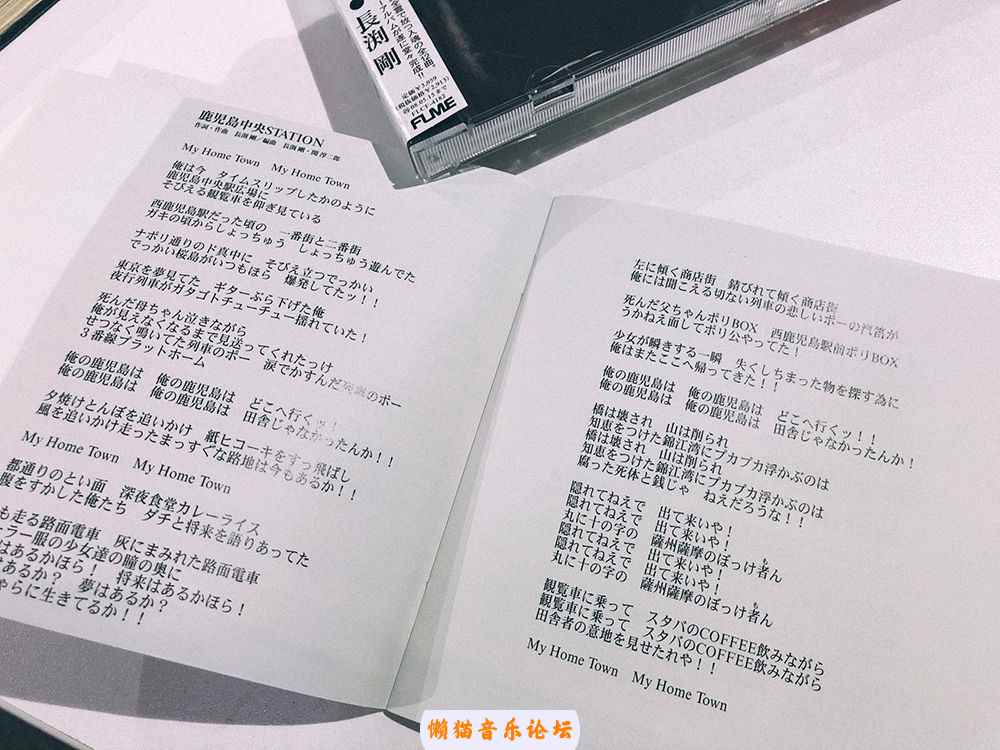 長渕 剛
定価¥3,059
(税抜価格¥2,913)
FLME
鹿児島中央STATION
作詞・作曲 長渕 剛/編曲 長渕 剛・関 淳二郎
My Home Town My Home Town
俺は今 タイムスリップしたかのように
鹿児島中央駅広場に
そびえる観覧車を仰ぎ見ている
西鹿児島駅だった頃の 一番街と二番街
ガキの頃からしょっちゅう しょっちゅう遊んでた
ナポリ通りのド真中に そびえ立つでっかい
でっかい桜島がいつもほら 爆発してたッ!!
東京を夢見てた ギターぶら下げた俺
夜行列車がガタゴトチューチュー揺れていた!
死んだ母ちゃん泣きながら
俺が見えなくなるまで見送ってくれたっけ
せつなく鳴いてた列車のポー 涙でかすんだ
のポー
3番線プラットホーム
俺の鹿児島は 俺の鹿児島は どこへ行くッ!!
俺の鹿児島は 俺の鹿児島は 田舎じゃなかったんか!!
夕焼けとんぼを追いかけ 紙ヒコーキをすっ飛ばし
風を追いかけ走ったまっすぐな路地は今もあるか!!
My Home Town My Home Town
都通りのとい面 深夜食堂カレーライス
腹をすかした俺たち ダチと将来を語りあってた
も走る路面電車 灰にまみれた路面電車
ーラー服の少女達の瞳の奥に
はあるかほら! 将来はあるかほら!
はあるか? 夢はあるか?
ゃらに生きてるか!!
左に傾く商店街 錆びれて傾く商店街
俺には聞こえる切ない列車の悲しいポーの汽笛が
死んだ父ちゃんポリBOX 西鹿児島駅前ポリBOX
うかねえ面してポリ公やってた!
少女が瞬きする一瞬 失くしちまった物を探す為に
俺はまたここへ帰ってきた!!
俺の鹿児島は 俺の鹿児島は どこへ行くッ!!
俺の鹿児島は 俺の鹿児島は 田舎じゃなかったんか!
橋は壊され 山は削られ
知恵をつけた錦江湾にプカプカ浮かぶのは
橋は壊され 山は削られ
知恵をつけた錦江湾にプカプカ浮かぶのは
腐った死体と銭じゃ ねえだろうな!!
隠れてねえで 出て来いや!
隠れてねえで 出て来いや!
丸に十の字の 薩州薩摩のぼっけ者ん
隠れてねえで 出て来いや!
隠れてねえで 出て来いや!
丸に十の字の 薩州薩摩のぼっけ者ん
観覧車に乗って スタバのCOFFEE飲みながら
観覧車に乗って スタバのCOFFEE飲みながら
田舎者の意地を見せたれや!!
My Home Town My Home Town
懒猫音乐论坛